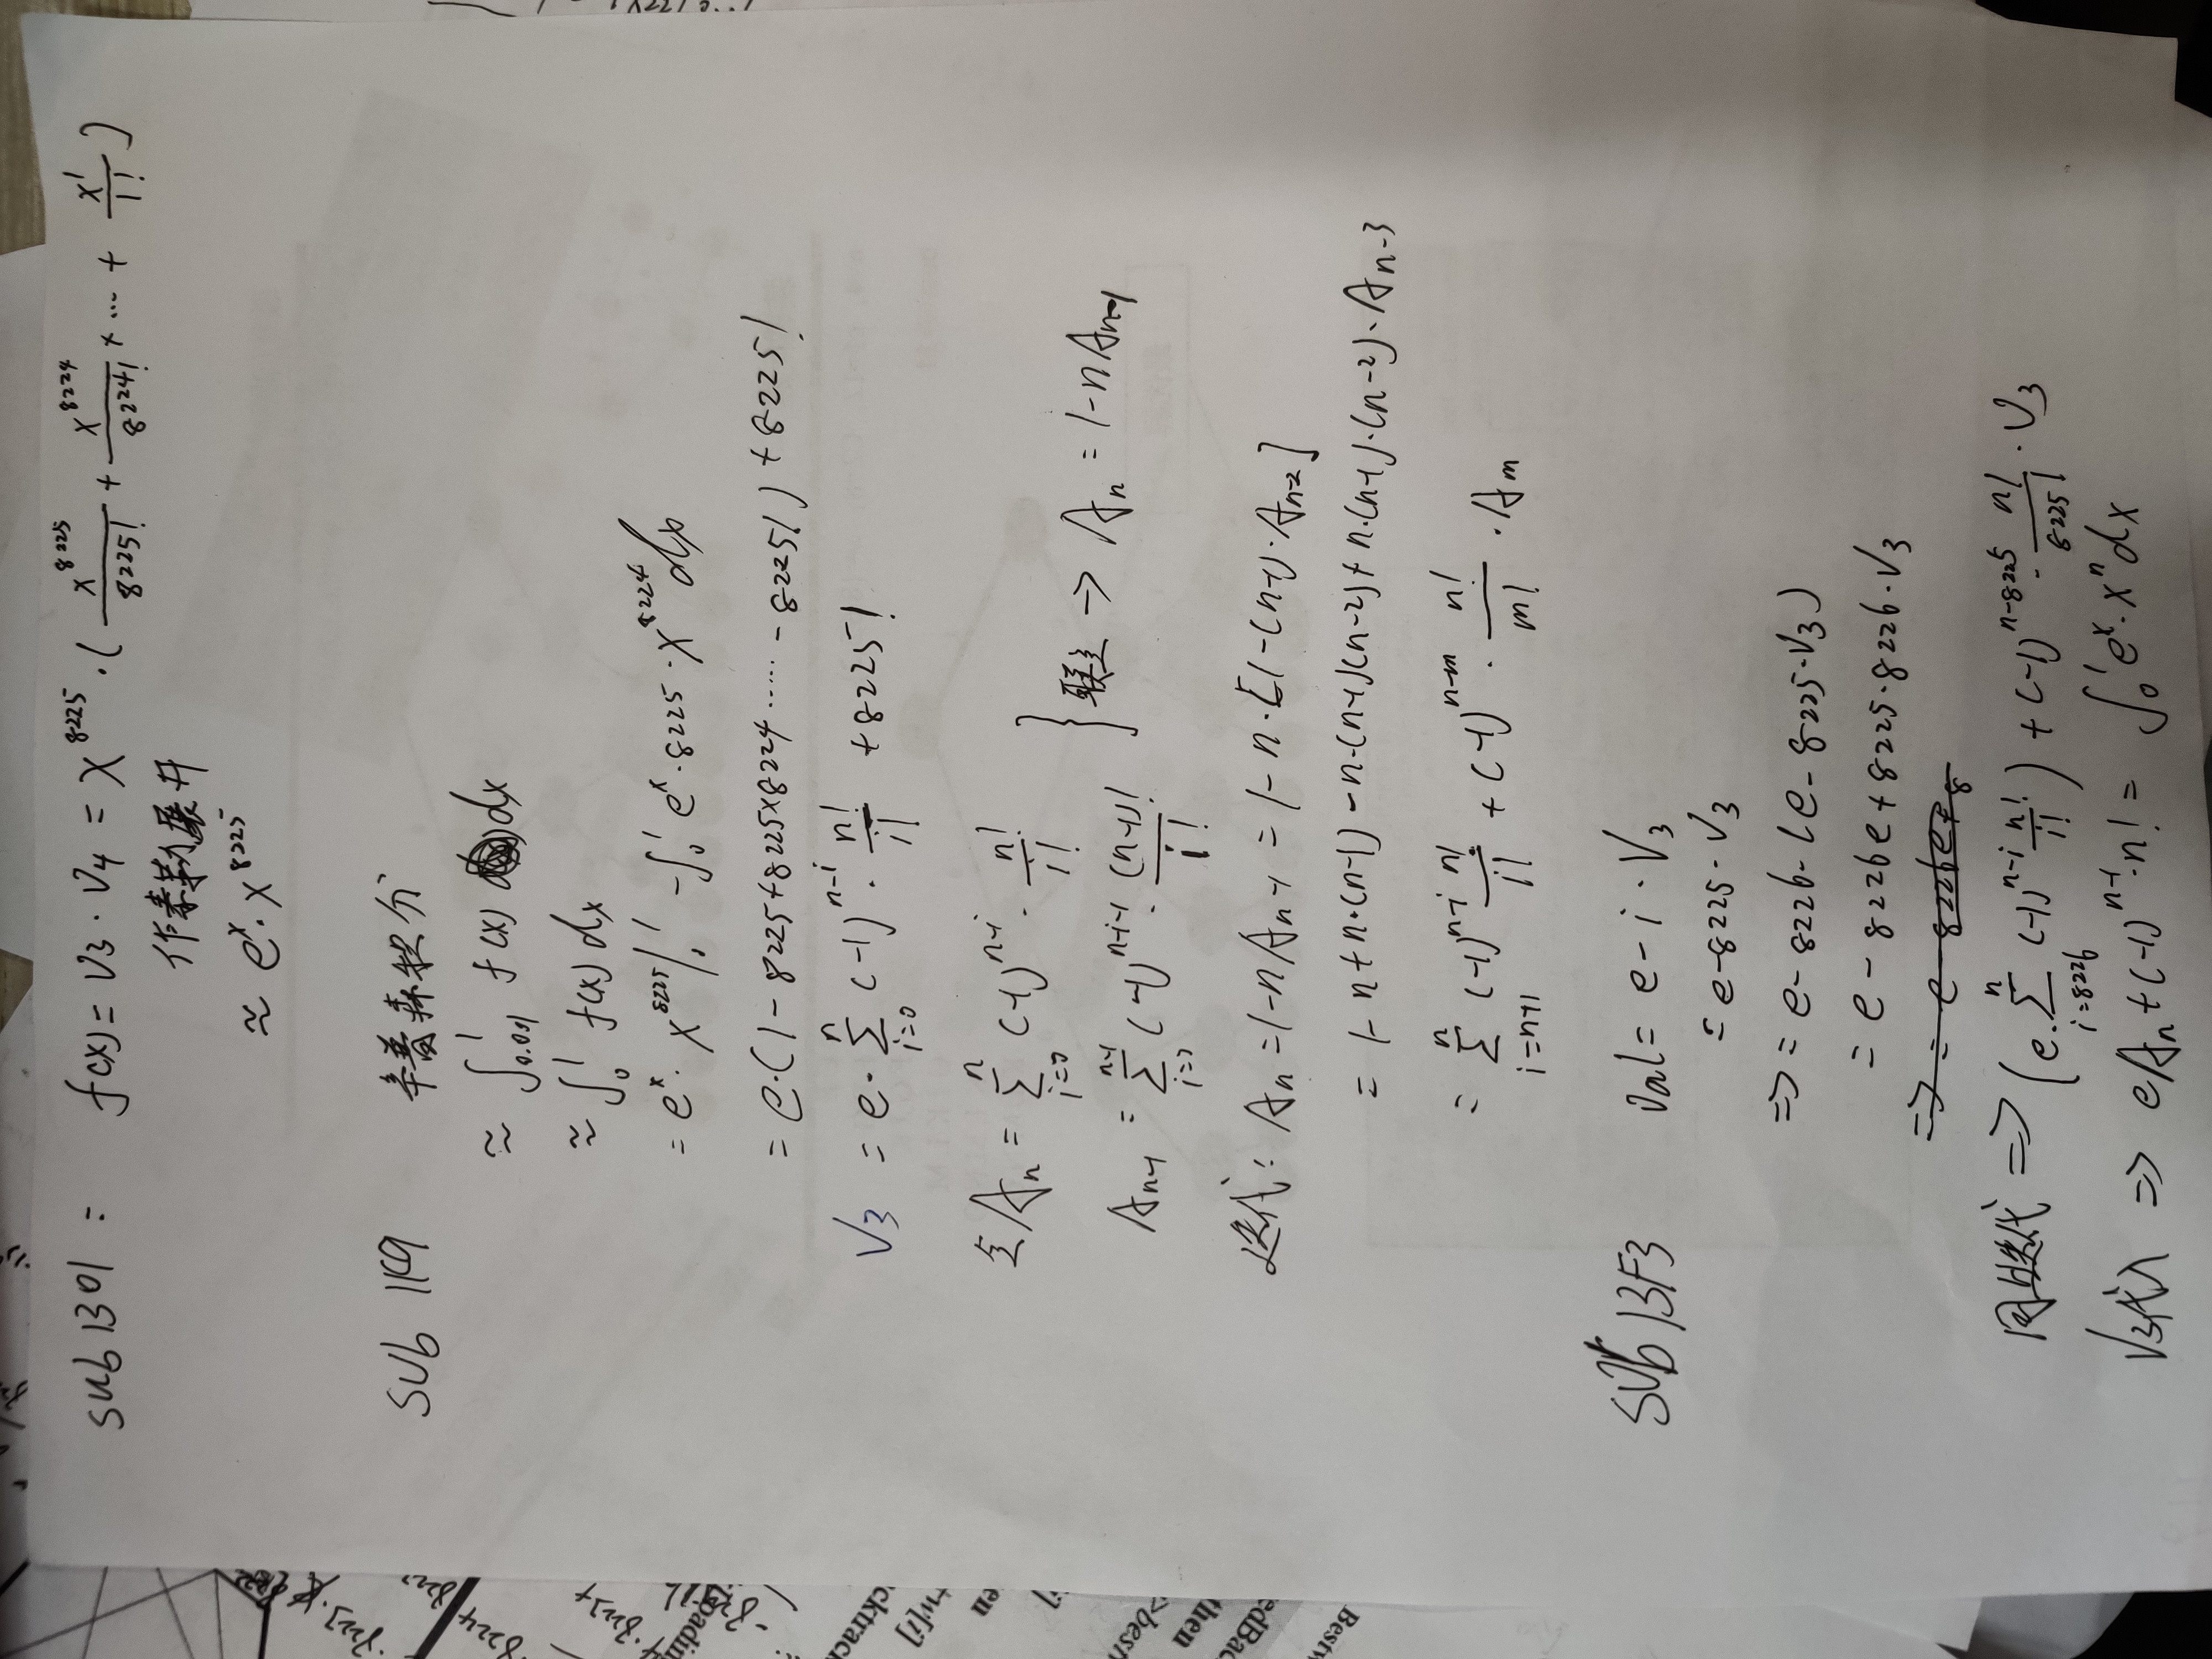 sub 1301 : f(x) = V3 · V4 = x^8225 · ( x^8225/8225! + x^8224/8224! + ... + x^1/1! )
作泰勒展开
≈ e^x · x^8225
sub 11C9 辛普森积分
≈ ∫_0.001^1 f(x) dx
≈ ∫_0^1 f(x) dx
= e^x · x^8225 |_0^1 - ∫_0^1 e^x · 8225 · x^8224 dx
= e·(1 - 8225 + 8225×8224 ····· - 8225!) + 8225!
V3 = e · Σ_{i=0}^n (-1)^{n-i} · n!/i! + 8225!
令 A_n = Σ_{i=0}^n (-1)^{n-i} · n!/i!
A_{n-1} = Σ_{i=0}^{n-1} (-1)^{n-i-1} · (n-1)!/i!
} 联立 → A_n = 1 - nA_{n-1}
迭代: A_n = 1 - nA_{n-1} = 1 - n·[1 - (n-1)·A_{n-2}]
= 1 - n + n·(n-1) - n·(n-1)(n-2) + n·(n-1)·(n-2)·A_{n-3}
= Σ_{i=n+1}^n (-1)^{n-i} n!/i! + (-1)^{n-m} · n!/m! · A_m
sub 13F3 val = e - i · V3
= e - 8225 · V3
=> = e - 8226·(e - 8225·V3)
= e - 8226e + 8225·8226·V3
=> = e - 8226e + 8
同上迭代 => (e·Σ_{i=8226}^n (-1)^{n-i} n!/i!) + (-1)^{n-8225} · n!/8225! · V3
V3代入 => eA_n + (-1)^{n-1}·n! = ∫_0^1 e^x · x^n dx